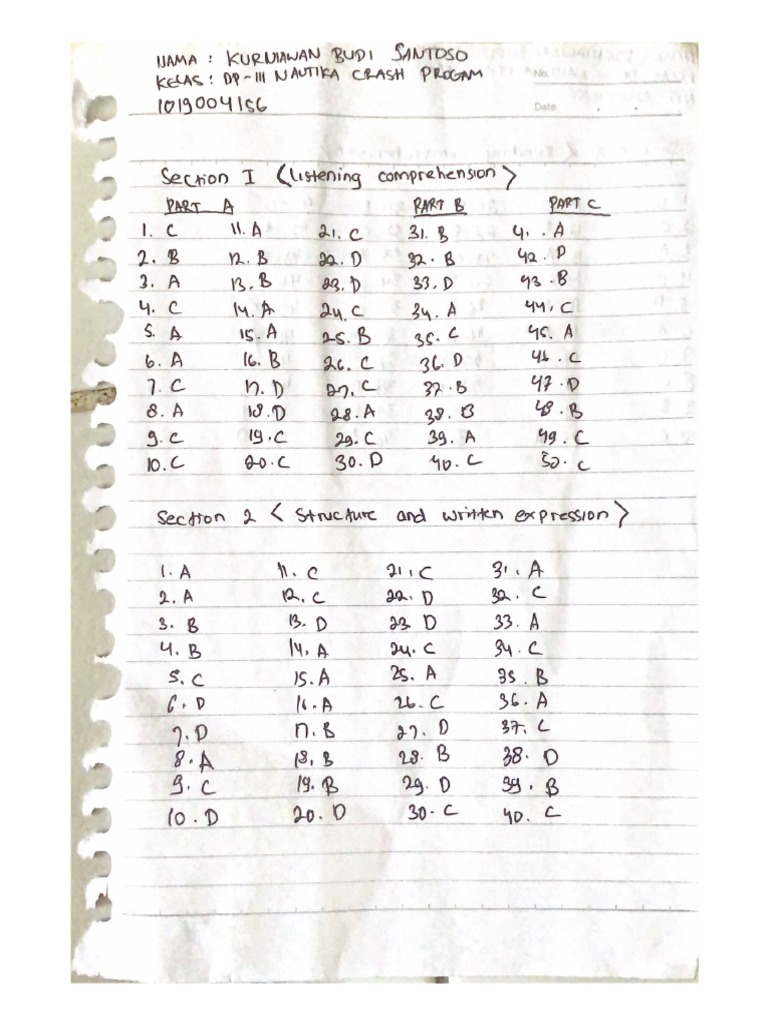 NAMA : KURNIAWAN BUDI SANTOSO
KELAS : DP-III NAUTIKA CRASH PROGAM
No.
1019004156
Date
Section I < listening comprehension >
PART A PART B PART C
1. C 11. A 21. C 31. B 41. A
2. B 12. B 22. D 32. B 42. D
3. A 13. B 23. D 33. D 43. B
4. C 14. A 24. C 34. A 44. C
5. A 15. A 25. B 35. C 45. A
6. A 16. B 26. C 36. D 46. C
7. C 17. D 27. C 37. B 47. D
8. A 18. D 28. A 38. B 48. B
9. C 19. C 29. C 39. A 49. C
10. C 20. C 30. D 40. C 50. C
Section 2 < Structure and written expression >
1. A 11. C 21. C 31. A
2. A 12. C 22. D 32. C
3. B 13. D 23 D 33. A
4. B 14. A 24. C 34. C
5. C 15. A 25. A 35. B
6. D 16. A 26. C 36. A
7. D 17. B 27. D 37. C
8. A 18. B 28. B 38. D
9. C 19. B 29. D 39. B
10. D 20. D 30. C 40. C